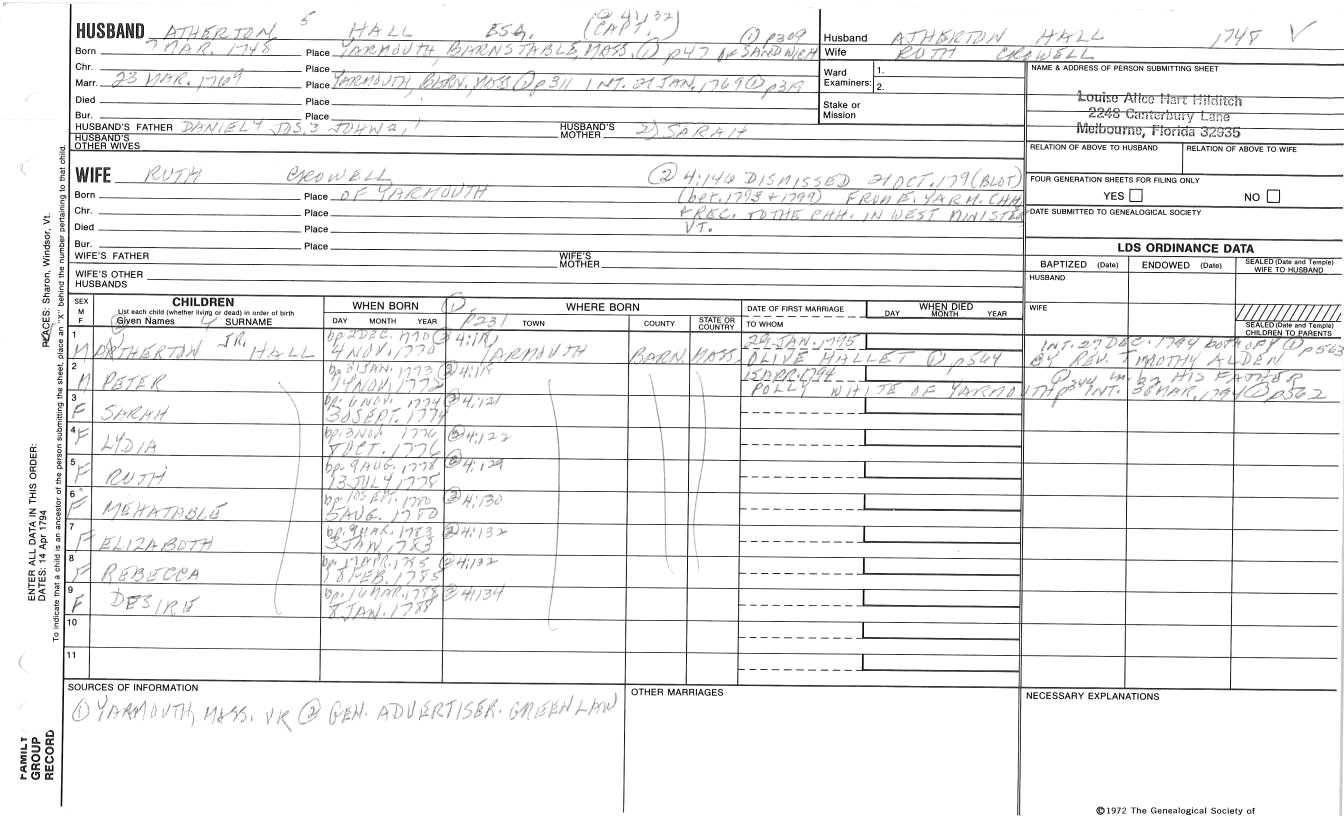 HUSBAND ATHERTON 5 HALL ESQ. (CAPT.) ② 4:132 ① p309
Born 7 MAR. 1748 Place YARMOUTH, BARNSTABLE, MASS. ① p47 OF SANDWICH
Chr. Place
Marr. 23 MAR. 1769 Place YARMOUTH, BARN, MASS ① p311 INT. 21 JAN. 1769 ①
Died Place
Bur. Place
HUSBAND'S FATHER DANIEL 4 JOS. 3 JOHN 2, 1 HUSBAND'S MOTHER 2) SARAH
HUSBAND'S OTHER WIVES
Husband ATHERTON HALL 1748 V
Wife RUTH CROWELL
Ward Examiners: 1.
2.
Stake or Mission
NAME & ADDRESS OF PERSON SUBMITTING SHEET
Louise Alice Hart Hilditch
2248 Canterbury Lane
Melbourne, Florida 32935
RELATION OF ABOVE TO HUSBAND RELATION OF ABOVE TO WIFE
FOUR GENERATION SHEETS FOR FILING ONLY
YES NO
DATE SUBMITTED TO GENEALOGICAL SOCIETY
WIFE RUTH CROWELL ② 4:146 DISMISSED 21 OCT. 179 (BLOT)
Born Place OF YARMOUTH (bet. 1793 + 1799) FROM E. YARM. CHH.
Chr. Place + REC. TO THE CHH. IN WEST MINISTER
Died Place VT.
Bur. Place
WIFE'S FATHER WIFE'S MOTHER
WIFE'S OTHER HUSBANDS
LDS ORDINANCE DATA
BAPTIZED (Date) ENDOWED (Date) SEALED (Date and Temple) WIFE TO HUSBAND
HUSBAND
WIFE
SEALED (Date and Temple) CHILDREN TO PARENTS
SEX M F
CHILDREN
List each child (whether living or dead) in order of birth
Given Names SURNAME
WHEN BORN
DAY MONTH YEAR
① p231
WHERE BORN
TOWN COUNTY STATE OR COUNTRY
DATE OF FIRST MARRIAGE
TO WHOM
WHEN DIED
DAY MONTH YEAR
1 bp. 2 DEC. 1770 ② 4:118 29 JAN. 1795 INT. 27 DEC. 1794 both OFY ① p563
M ATHERTON JR. HALL 4 NOV. 1770 YARMOUTH BARN. MASS. OLIVE HALLET ① p564 BY REV. TIMOTHY ALDEN
2 bp. 31 JAN. 1773 ② 4:118 15 APR. 1794 ① p344 HIS FATHER
M PETER 14 NOV. 1772 POLLY WHITE OF YARMOUTH INT. MAR. 1794 ① p562
3 bp. 6 NOV. 1774 ② 4:121
F SARAH 30 SEPT. 1774
4 bp. 3 NOV. 1776 ② 4:122
F LYDIA 8 OCT. 1776
5 bp. 9 AUG. 1778 ② 4:129
F RUTH 13 JULY 1778
6 bp. 10 SEPT. 1780 ② 4:130
F MEHATABLE 5 AUG. 1780
7 bp. 9 MAR. 1783 ② 4:132
F ELIZABOTH 3 JAN. 1783
8 bp. 17 APR. 1785 ② 4:132
F REBECCA 18 FEB. 1785
9 bp. 16 MAR. 1788 ② 4:134
F DESIRE 8 JAN. 1788
10
11
SOURCES OF INFORMATION
① YARMOUTH, MASS. VR ② GEN. ADVERTISER. GREENLAW
OTHER MARRIAGES
NECESSARY EXPLANATIONS
©1972 The Genealogical Society of
PLACES: Sharon, Windsor, Vt.
To indicate that a child is an ancestor of the person submitting the sheet, place an "X" behind the number pertaining to that child.
ENTER ALL DATA IN THIS ORDER:
DATES: 14 Apr 1794
FAMILY GROUP RECORD